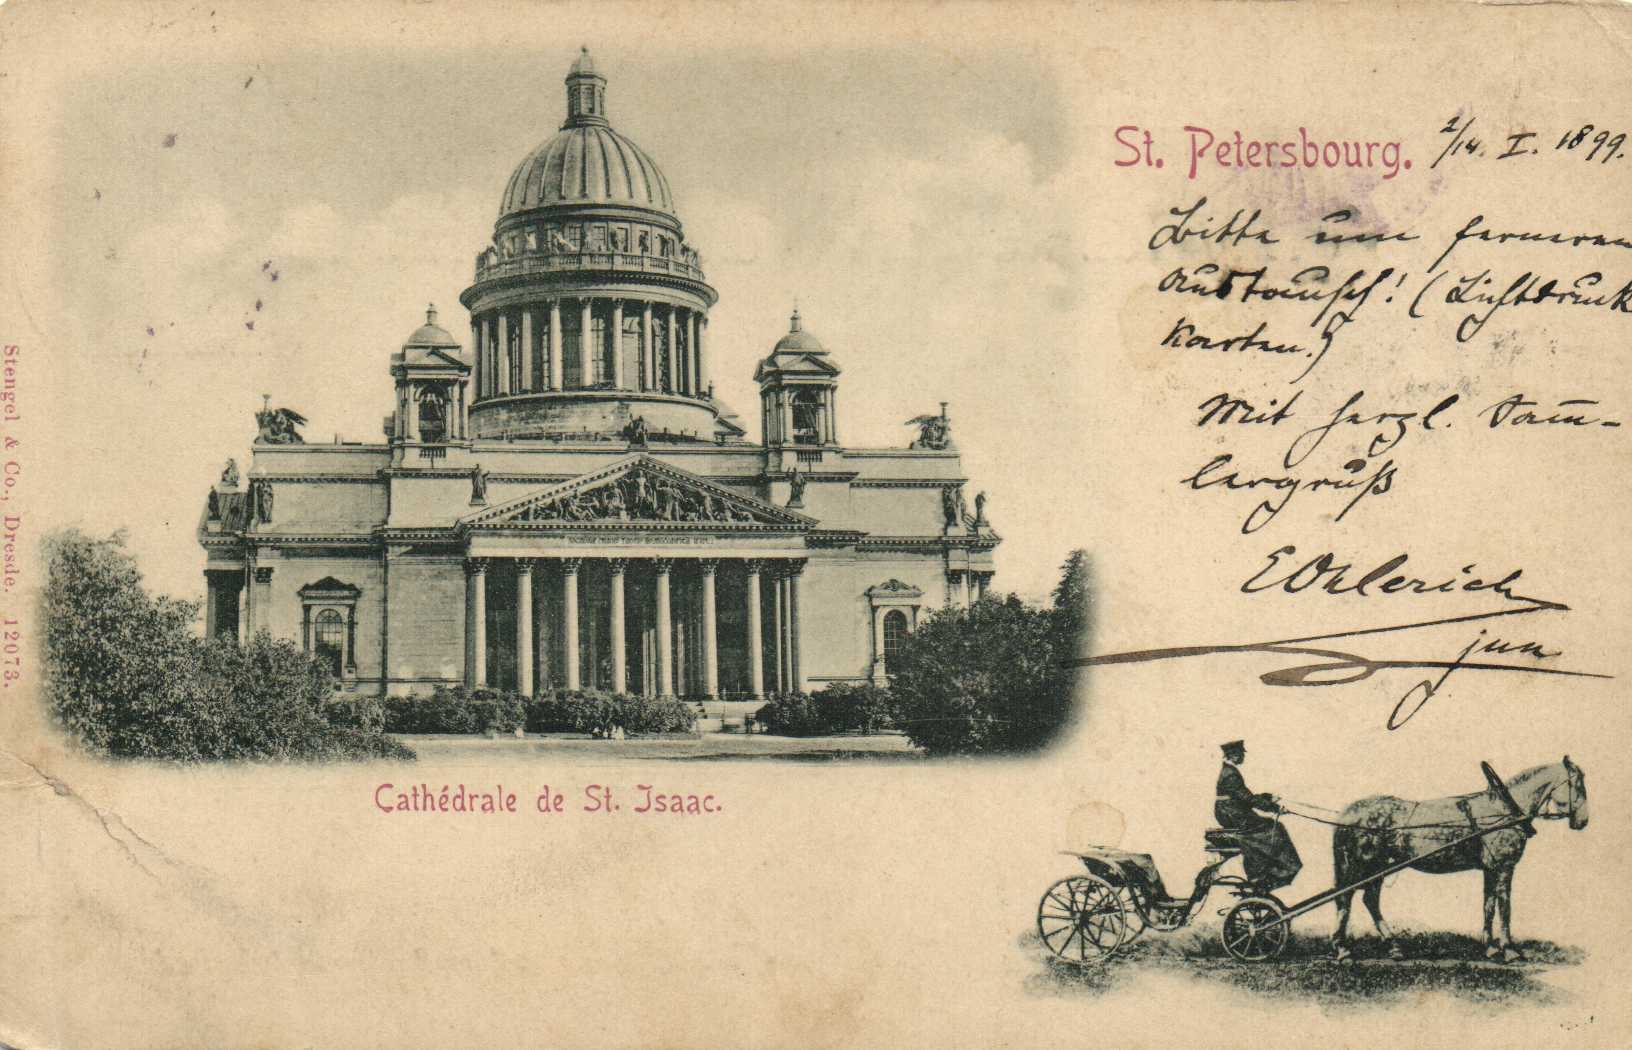 St. Petersbourg. 2/14. I. 1899.
Bitte um ferneren
Austausch! (Lichtdruck
Karten.)
Mit herzl. Sam-
lergruß
EOhlerich
jun
Cathédrale de St. Isaac.
Stengel & Co., Dresde. 12073.